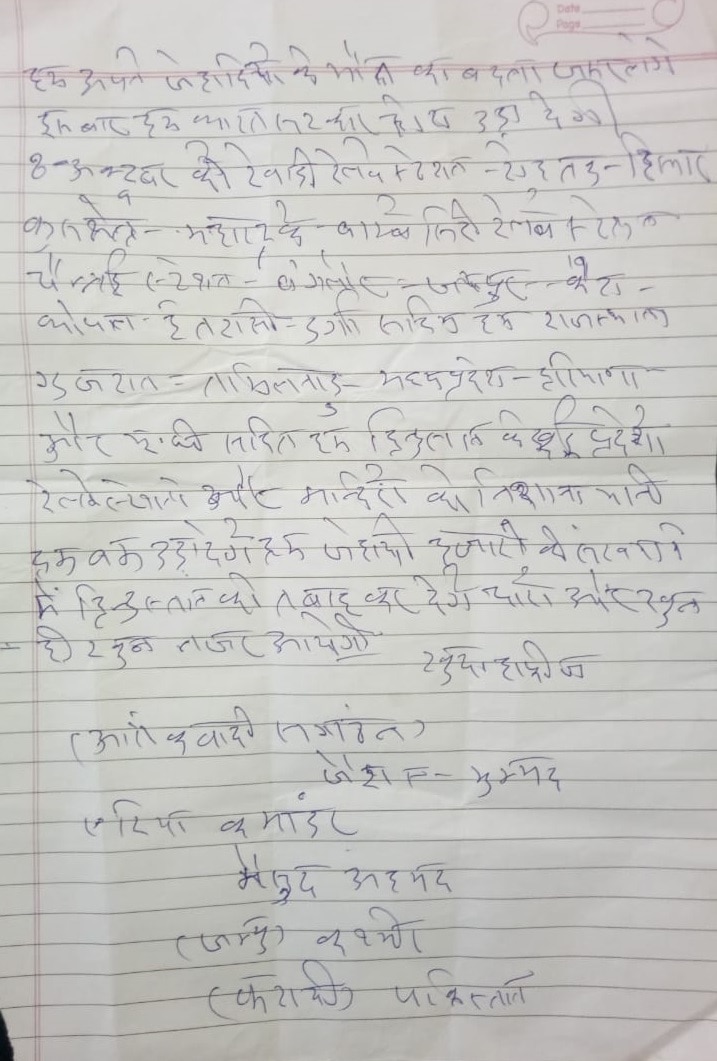 Date
Page
हम अपने जेहादियो के मौत का बदला जरूर लेगे
इस बार हम भारत सरकार को उड़ा देगे
8 अक्टूबर को रेवाड़ी रेलवे स्टेशन - रोहतक - हिसार
कुरुक्षेत्र - बाम्बे सिटी रेलवे स्टेशन
चैन्नई स्टेशन - बंगलौर - जयपुर -
भोपाल - ईतरासी - सहित हम राजस्थान
गुजरात - तामिलनाडु - मध्यप्रदेश - हरियाणा
और यूपी सहित हम हिन्दुस्तान के कई प्रदेश
रेलवे स्टेशनो और मन्दिरो को निशाना
हम बम उड़ा देगे हम जेहादी हजारो की संख्या
में हिन्दुस्तान को तबाह कर देगे चारो और खुन
ही खुन नजर आयेगी
खुदा हाफीज
(आतंकवादी संगठन)
जैश ए - मुहम्मद
एरिया कमांडर
अहमद
(जम्मू) कश्मीर
(कराची) पाकिस्तान